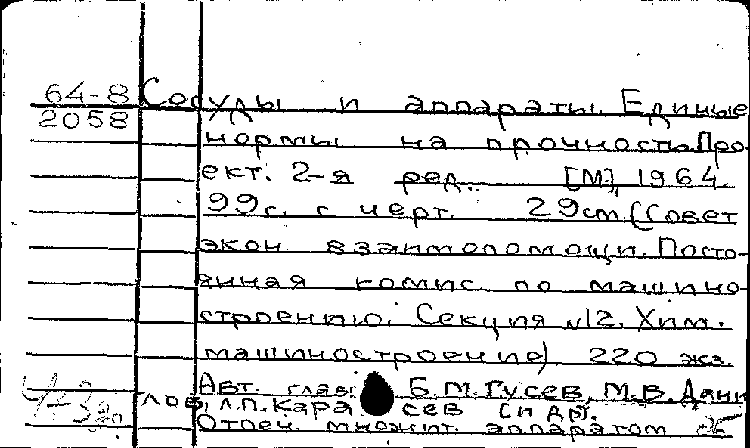 64-8 Сосуды и аппараты. Единые
2058 нормы на прочность. Про-
ект. 2-я ред. [М], 1964.
99с. с черт. 29см (Совет
экон взаимопомощи. Посто-
янная комис. по машино-
строению. Секция №12. Хим.
машиностроение) 220 экз.
Авт. глав: Б.М.Гусев, М.В. Дани
лов, Л.П.Кара сев и др.
Отпеч. множит. аппаратом